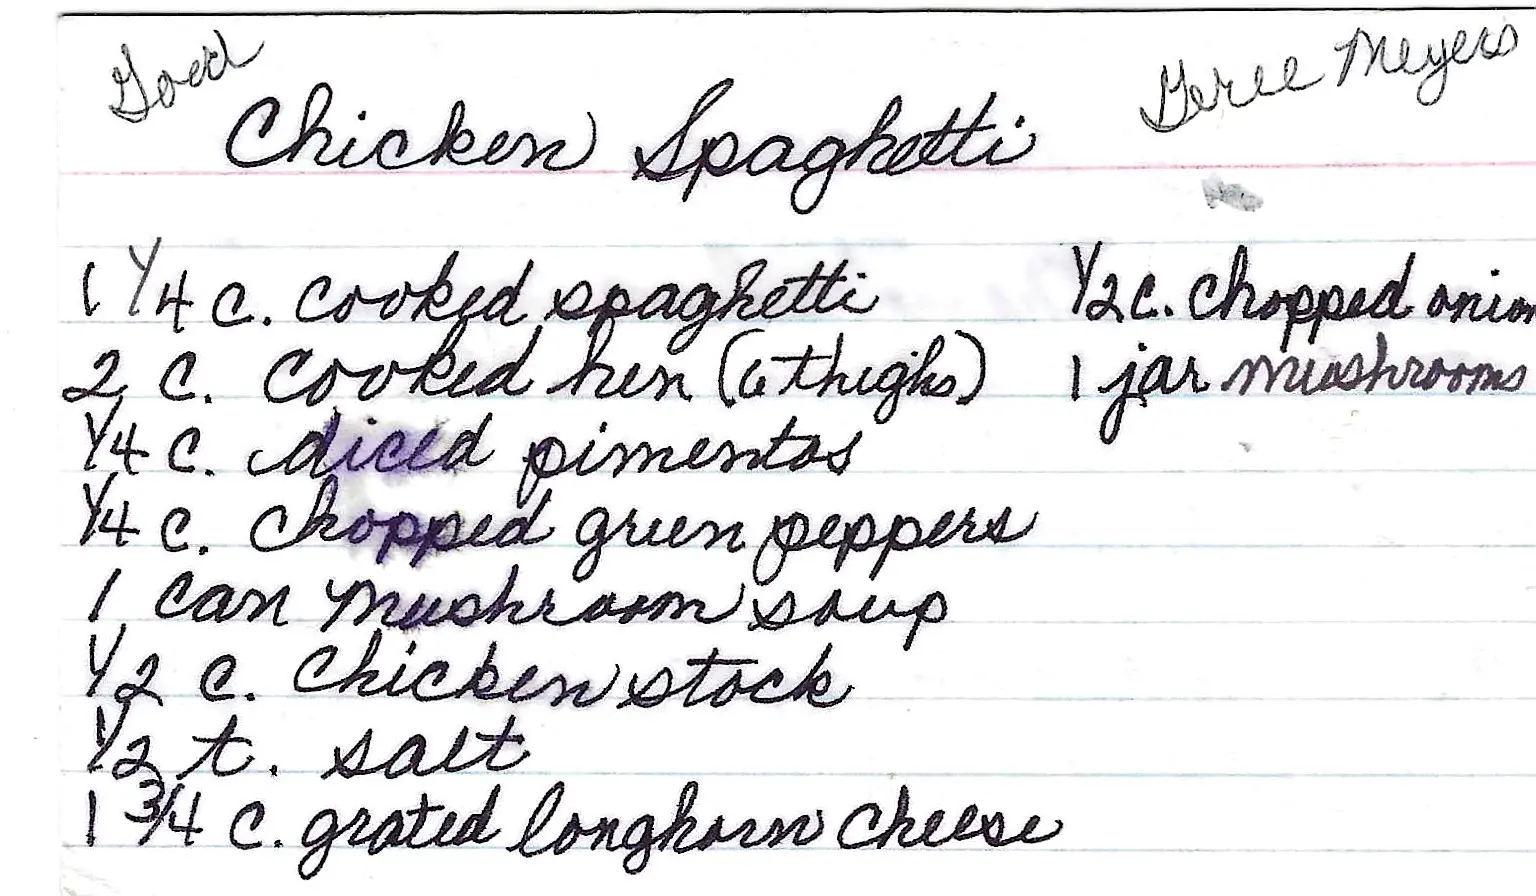 Good
Geree Meyers
Chicken Spaghetti
1 1/4 c. cooked spaghetti
2 c. cooked hen (6 thighs)
1/4 c. diced pimentos
1/4 c. chopped green peppers
1 can mushroom soup
1/2 c. chicken stock
1/2 t. salt
1 3/4 c. grated longhorn cheese
1/2 c. chopped onion
1 jar mushrooms